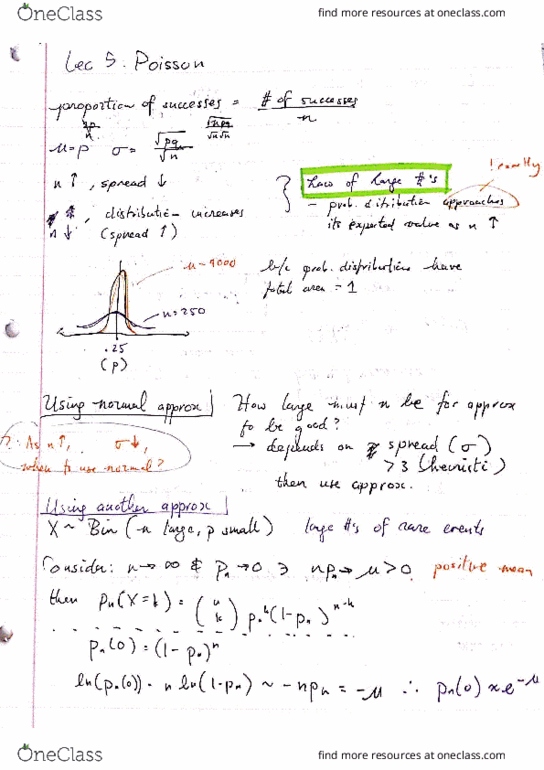 OneClass find more resources at oneclass.com
Lec 5: Poisson
proportion of successes = # of successes / n
μ=p σ= √pq / √n
n ↑, spread ↓
Law of large #'s
- prob. distribution approaches
its expected value as n ↑
distribution increases
n ↓ (spread ↑)
n=250
b/c prob. distributions have
total area = 1
.25
(p)
Using normal approx
How large must n be for approx
to be good?
→ depends on spread (σ)
>3 (heuristic)
then use approx.
?: As n↑, σ↓,
when to use normal?
Using another approx
X ~ Bin (n large, p small) large #'s of rare events
Consider: n→∞ & pₙ→0 ∋ npₙ→μ>0, positive mean
then pₙ(X=k) = (n k) pₙᵏ(1-pₙ)ⁿ⁻ᵏ
pₙ(0) = (1-pₙ)ⁿ
ln(pₙ(0)) = n ln(1-pₙ) ~ -npₙ = -μ ∴ pₙ(0) ≈ e^-μ
OneClass find more resources at oneclass.com